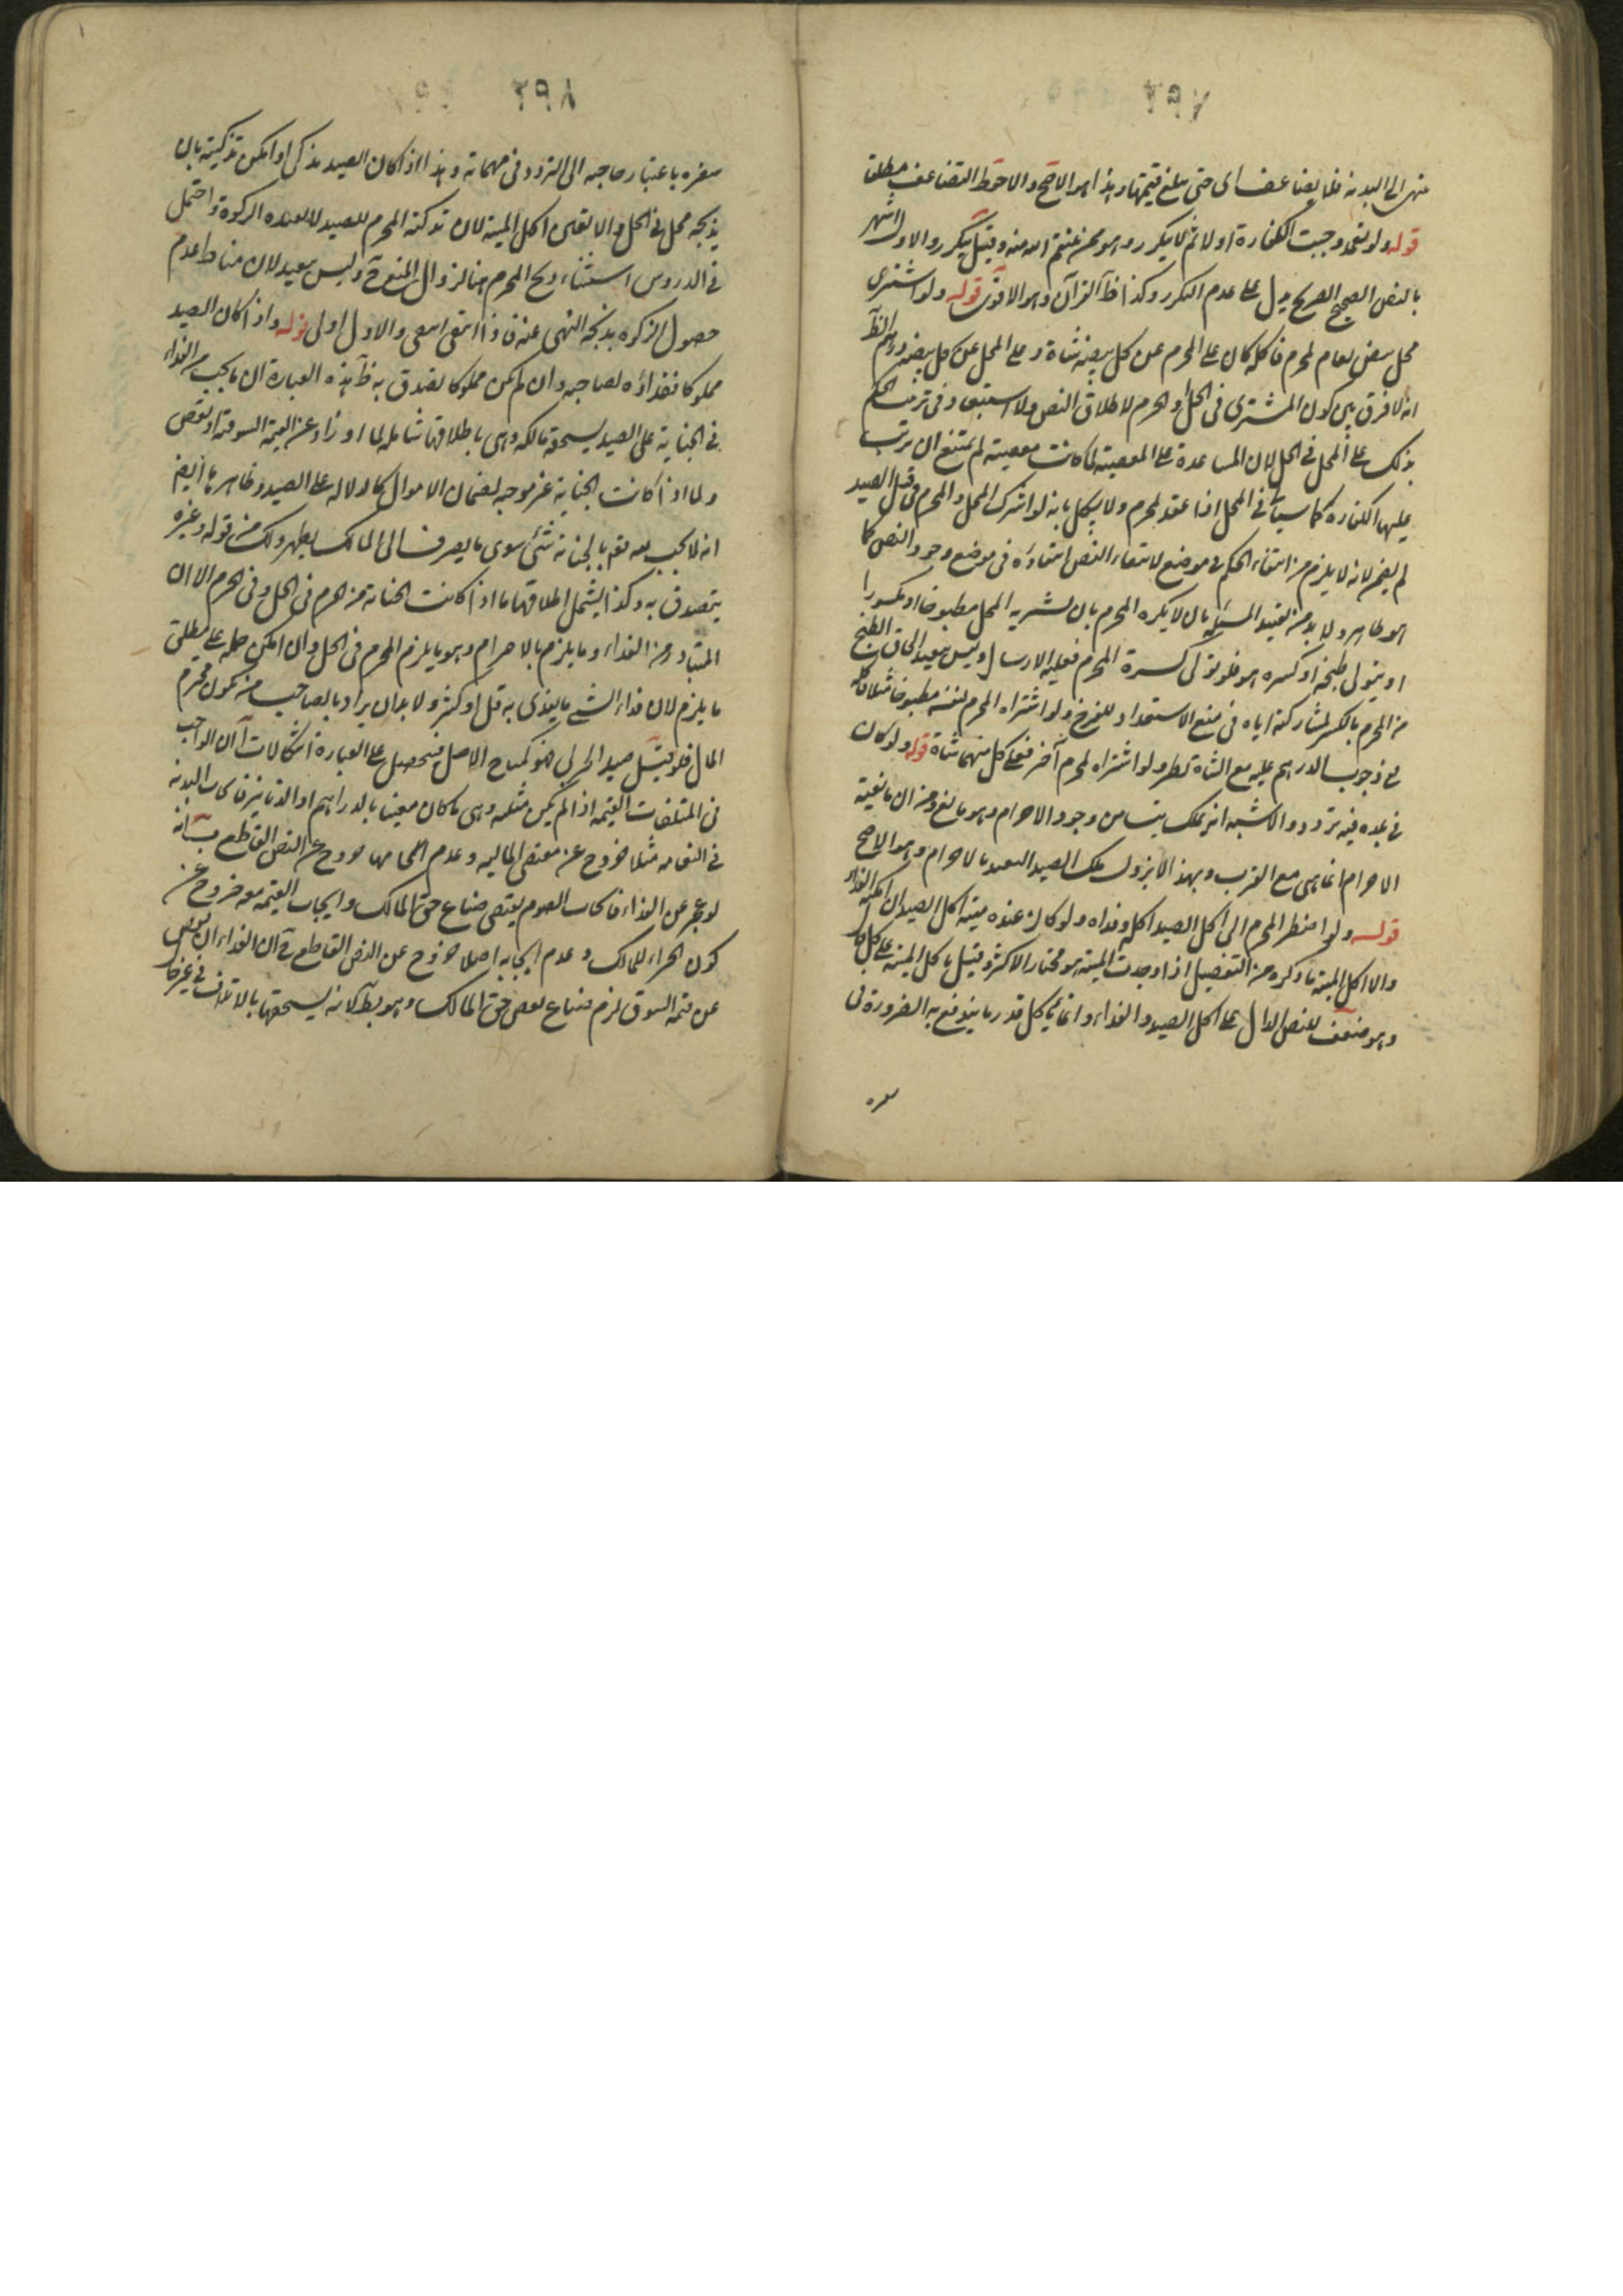 ٢٩٧
منه الى البدنة فلا يضاعف الى حتى يبلغ قيمتها وهذا هو الاصح والاحوط التضاعف مطلقا
قوله ولو تعمد وجبت الكفارة اولا ثم لا يتكرر وهو ممن ينتقم الله منه وقيل يتكرر والاول اشهر
بالنص الصحيح الصريح يدل على عدم التكرر وكذا ظ القرآن وهو الاقوى قوله ولو اشترى
محل بيض نعام لمحرم فاكله كان على المحرم عن كل بيضة شاة وعلى المحل عن كل بيضة درهم الظ
انه لا فرق بين كون المشترى فى الحل او الحرم لاطلاق النص ولا استبعاد فى ترتب الحكم
بذلك على المحل فى الحل لان المساعدة على المعصية لما كانت معصية لم يمتنع ان يرتب
عليها الكفارة كما سيأتى فى المحل اذا عقد لمحرم ولا يشكل بانه لو اشترك المحل والمحرم فى قتل الصيد
لم يضمن لانه لا يلزم من انتفاء الحكم فى موضع لانتفاء النص انتفاءه فى موضع وجود النص كما
هو ظاهر ولا بد من تقييد المسئلة بان لا يكسره المحرم بان يشتريه المحل مطبوخا او مكسورا
او يتولى طبخه او كسره هو فلو تولى كسره المحرم فعليه الارسال وليس ببعيد الحاق الطبخ
من المحرم بالكسر لمشاركته اياه فى منع الاستعداد للفرخ ولو اشتراه المحرم لنفسه مطبوخا مثلا فاكله
فى وجوب الدرهم عليه مع الشاة نظر ولو اشتراه لمحرم آخر فعلى كل منهما شاة قوله ولو كان
فى بلده فيه تردد والاشبه انه يملك من وجود الاحرام وهو مانع ومن ان مانعية
الاحرام انما هى مع القرب وبهذا لا يزول ملك الصيد البعيد بالاحرام وهو الاصح
قوله ولو اضطر المحرم الى اكل الصيد اكله وفداه ولو كان عنده ميتة اكل الصيد ان امكنه الفداء
والا اكل الميتة ما ذكره من التفصيل اذا وجدت الميتة هو مختار الاكثر وقيل يأكل الميتة على كل حال
وهو ضعيف للنص الدال على اكل الصيد والفداء وانما يأكل قدر ما يندفع به الضرورة فى
سفره
٢٩٨
سفره باعتبار حاجته الى التردد فى مهماته وهذا اذا كان الصيد مذكى او امكن تذكيته بان
يذبحه محل فى الحل والا تعين اكل الميتة لان تذكية المحرم للصيد لا تفيده الزكوة واحتمل
فى الدروس استثناء ذبح المحرم هنا لزوال المنع وليس ببعيد لان مناط عدم
حصول الزكوة بذبحه النهى عنه فاذا انتفى انتفى والاول اولى قوله واذا كان الصيد
مملوكا ففداؤه لصاحبه وان لم يكن مملوكا تصدق به ظ هذه العبارة ان ما يجب من الفداء
فى الجناية على الصيد يستحقه مالكه وهى باطلاقها شاملة لما اذا زاد عن القيمة السوقية او نقص
ولما اذا كانت الجناية غير موجبة لضمان الاموال كالدلالة على الصيد وظاهرها ايضا
انه لا يجب بالجناية شئ سوى ما يصرف الى المالك يظهر ذلك من قوله وغيره
يتصدق به وكذا يشمل اطلاقها ما اذا كانت الجناية من المحرم فى الحل وفى الحرم الا ان
المتبادر من الفداء ما يلزم بالاحرام وهو ما يلزم المحرم فى الحل وان امكن حمله على مطلق
ما يلزم لان فداء الشئ ما يفدى به قل او كثر ولا بد ان يراد بالصاحب من يكون محترم
المال فلو قتل صيد الحربى فهو كمباح الاصل فيتحصل على العبارة اشكالات آ ان الواجب
فى المتلفات القيمة اذا لم يكن مثلية وهى ما كان معينا بالدراهم او الدنانير فايجاب البدنة
فى النعامة مثلا خروج عن مقتضى المالية وعدم ايجابها خروج عن النص القاطع ب انه
لو عجز عن الفداء فايجاب الصوم يقتضى ضياع حق المالك وايجاب القيمة معه خروج عن
كون الجزاء للمالك وعدم ايجابه اصلا خروج عن النص القاطع ج ان الفداء ان نقص
عن قيمة السوق لزم ضياع بعض حق المالك وهو بط لانه يستحقها بالاتلاف فى غير